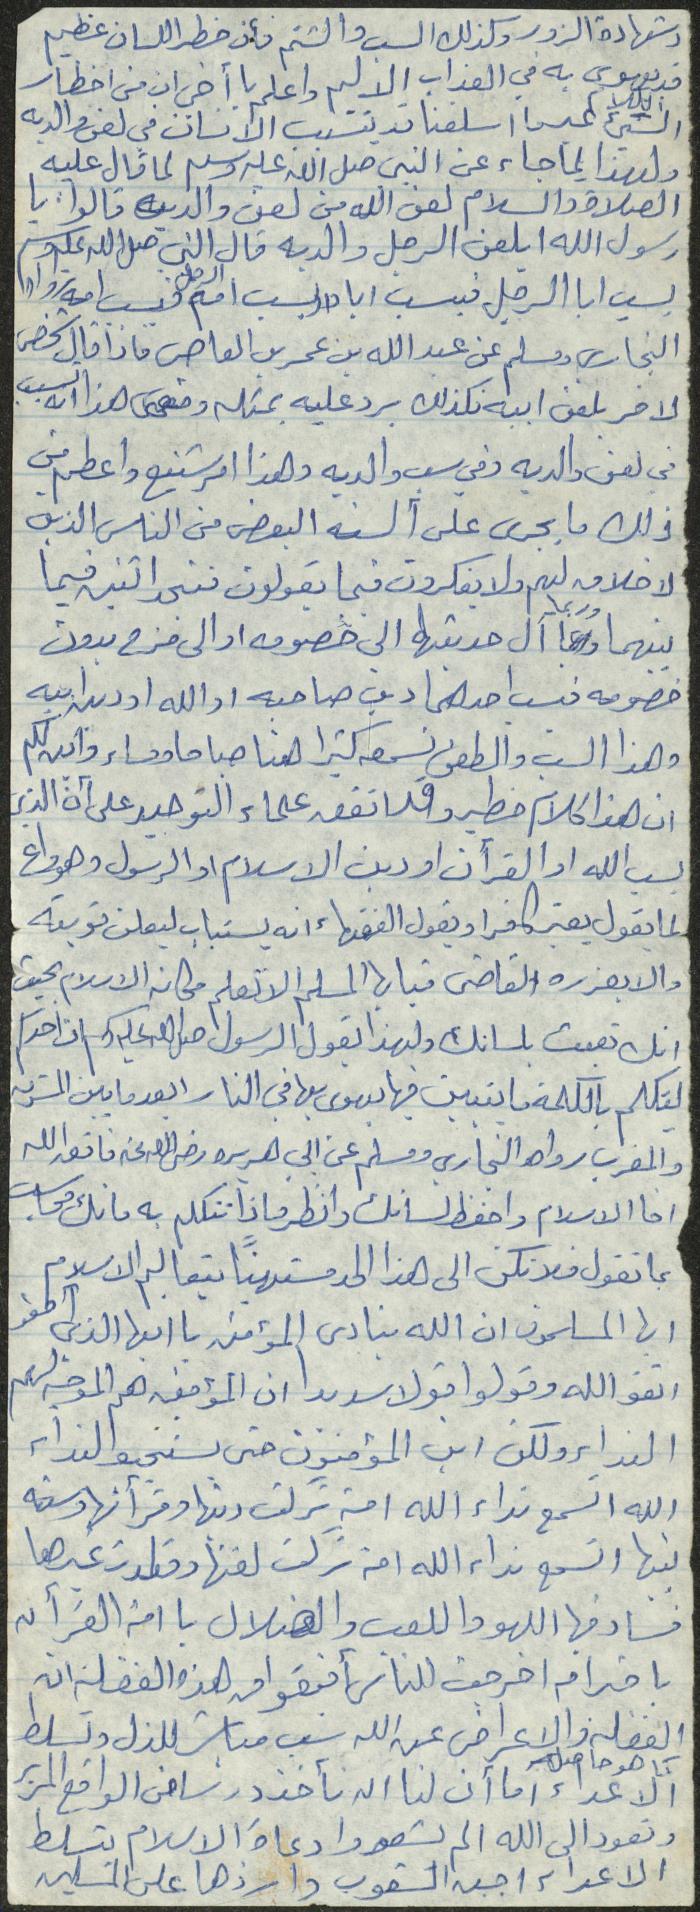 وشهادة الزور وكذلك السب والشتم فأن خطر اللسان عظيم
قد يهوى به في العذاب الاليم واعلم يا أخى ان من اخطار
الكلام السيئ عندما اسلفنا قد يتسبب الانسان في لعن والديه
ولهذا لما جاء عن النبي صلى الله عليه وسلم لما قال عليه
الصلاة والسلام لعن الله من لعن والديه قالوا يا
رسول الله ايلعن الرجل والديه قال النبي صلى الله عليه وسلم
يسب ابا الرجل فيسب اباه ويسب امه الرجل فيسب امه رواه
البخاري ومسلم عن عبد الله بن عمر بن العاص فاذا قال شخص
لاخر يلعن ابيه فكذلك يرد عليه بمثله ومعنى هذا انه تسبب
في لعن والديه وفي سب والديه وهذا امر شنيع واعظم من
ذلك ما يجرى على ألسنه البعض من الناس الذين
لا خلاق لهم ولا يفكرون فيما يقولون فتجد اثنين فيما
بينهما وربما آل حديثها الى خصومه او الى مزح بدون
خصومه فيسب احدهما دين صاحبه او الله او دين ابيه
وهذا السب والطعن نسمعه كثيرا هنا صباحا ومساء وأبين لكم
ان هذا كلام خطير وقد اتفقه علماء التوحيد على أن الذى
يسب الله او القرأن او دين الاسلام او الرسول وهو واع
لما يقول يعتبر كافرا ويقول الفقهاء انه يستتاب ليعلن توبته
والا يعزره القاضى فيا ايها المسلم الا تعلم مكانه الاسلام بحيث
انك تعبث بلسانك ولهذا يقول الرسول صلى الله عليه وسلم ان احدكم
ليتكلم بالكلمة ما يتبين فيها يهوى بها في النار ابعد ما بين المشرق
والمغرب رواه البخاري ومسلم عن ابي هريره رضى الله عنه فاتق الله
اخا الاسلام واحفظ لسانك وانظر ماذا تتكلم به فانك محاسب
بما تقول فلا تكن الى هذا الحد مستهينًا بتعاليم الاسلام
ايها المسلمون ان الله ينادى المؤمنين يا ايها الذين آمنو
اتقو الله وقولوا قولا سديدا ان المؤمنين هم الموجه لهم
النداء ولكن اين المؤمنون حتى يستجيبو النداء
الله اتسمع نداء الله امة تركت دينها وقرأنها وسنه
نبيها اتسمع نداء الله امة تركت لغتها وقلدت غيرها
فساد فيها اللهو واللعب والضلال يا امة القرأن
يا خير امه اخرجت للناس أفيقوا من هذه الغفله ان
الغفله والاعراض عن الله سبب مباشر للذل وتسلط
الاعداء كما هو حاصل أما أن لنا ان نأخذ درسا من الواقع المر
ونعود الى الله الم تشعروا دعاة الاسلام بتسلط
الاعداء اجبن الشعوب وارذها على المسلمين